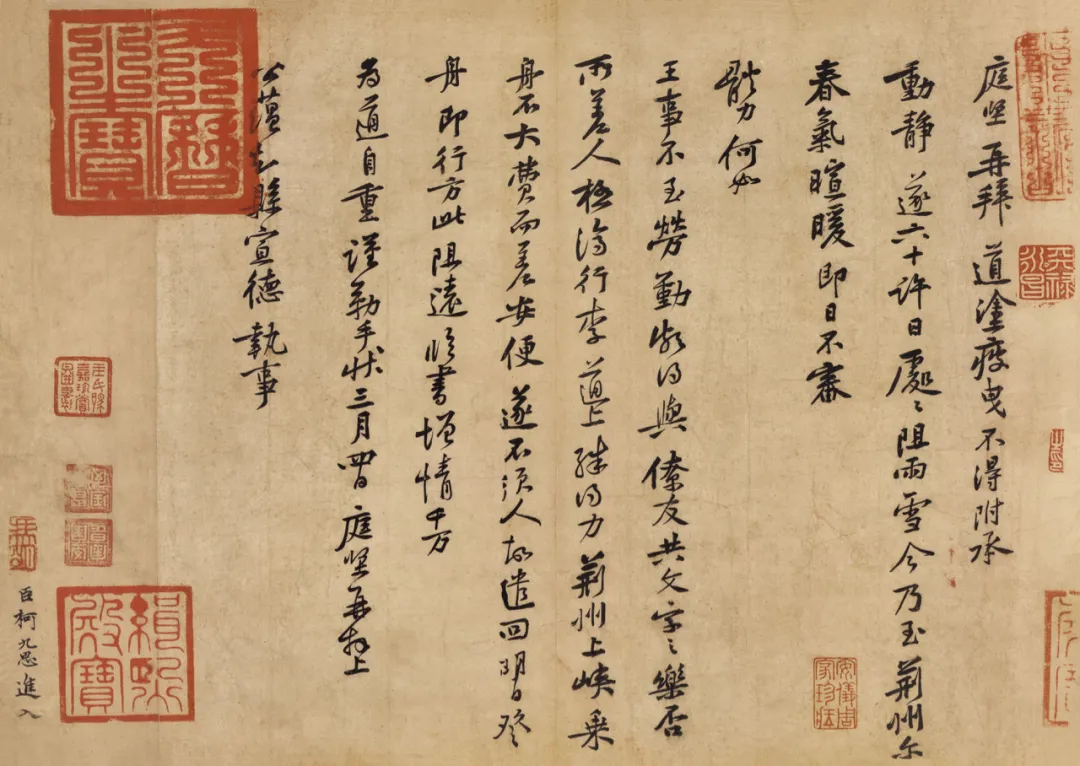 庭堅再拜 道塗疲曳 不得附承
動靜 遂六十許日 處〻阻雨雪 今乃至荆州尔
春氣暄暖 即日不審
體力何如
王事不至勞勤 頗得與僚友共文字之樂否
所差人極濟行李 道上殊得力 荆州上峽乘
舟不大費而差安便 遂不須人 故遣回 明日發
舟即行 方此阻遠 臨書增情 千万
為道自重 謹勒手狀 三月四日 庭堅再拜上
公藴知縣宣德執事
臣柯九思進入
緝熙殿寶
安儀周家珍藏